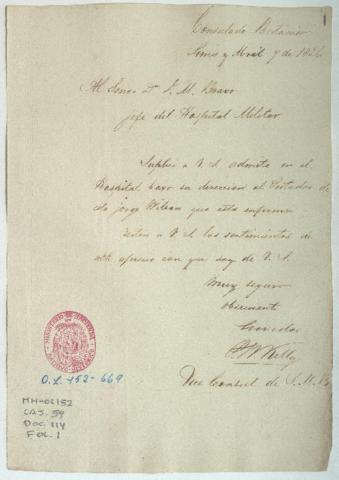 1
Consulado Británico
Lima y Abril 7 de 1826
Al Senor Dn J. M. Bravo
jefe del Hospital Militar
Suplico a V. S. admita en el
Hospital baxo su direccion al Portador de
esta Jorge Wilson que esta enfermo
a V. S. los sentimientos de
mi aprecio con que soy de V. S.
Muy seguro
obediente
Servidor
Kelly
Vice Consul de S. M. B.
O.L. 152-669
MH-OL152
CAJ. 59
DOC. 114
FOL. 1